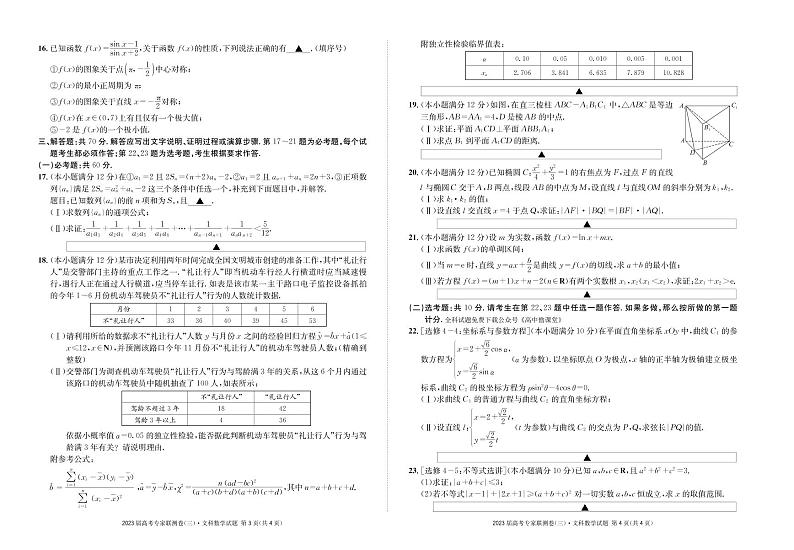 16.已知函数 f(x)=(sin x-1)/(sin x+2),关于函数 f(x)的性质,下列说法正确的有 ▲ .(填序号)
①f(x)的图象关于点(π,-1/2)中心对称;
②f(x)的最小正周期为 π;
③f(x)的图象关于直线 x=-π/2对称;
④f(x)在 x∈(0,7)上有且仅有一个极大值;
⑤-2 是 f(x)的一个极小值.
三、解答题:共 70 分.解答应写出文字说明、证明过程或演算步骤.第 17~21 题为必考题,每个试
题考生都必须作答;第 22、23 题为选考题,考生根据要求作答.
(一)必考题:共 60 分.
17.(本小题满分 12 分)在①a₁=2 且 2Sₙ=(n+2)aₙ-2,②a₁=2 且 aₙ₊₁+aₙ=2n+3,③正项数
列{aₙ}满足 2Sₙ=aₙ²+aₙ-2 这三个条件中任选一个,补充到下面题目中,并解答.
题目:已知数列{aₙ}的前 n 项和为 Sₙ,且 ▲ .
(Ⅰ)求数列{aₙ}的通项公式;
(Ⅱ)求证:1/(a₁a₃)+1/(a₂a₄)+1/(a₃a₅)+…+1/(aₙ₋₁aₙ₊₁)+1/(aₙaₙ₊₂)<5/12.
▲
18.(本小题满分 12 分)某市决定利用两年时间完成全国文明城市创建的准备工作,其中“礼让行
人”是交警部门主持的重点工作之一.“礼让行人”即当机动车行经人行横道时应当减速慢
行,遇行人正在通过人行横道,应当停车让行.如表是该市某一主干路口电子监控设备抓拍
的今年 1-6 月份机动车驾驶员不“礼让行人”行为的人数统计数据.
月份 1 2 3 4 5 6
不“礼让行人” 33 36 40 39 45 53
(Ⅰ)请利用所给的数据求不“礼让行人”人数 y 与月份 x 之间的经验回归方程ŷ=b̂x+â(1≤
x≤12,x∈N),并预测该路口今年 11 月份不“礼让行人”的机动车驾驶员人数;(精确到
整数)
(Ⅱ)交警部门为调查机动车驾驶员“礼让行人”行为与驾龄满 3 年的关系,从这 6 个月内通过
该路口的机动车驾驶员中随机抽查了 100 人,如表所示:
不“礼让行人” “礼让行人”
驾龄不超过 3 年 18 42
驾龄 3 年以上 4 36
依据小概率值 α=0.05 的独立性检验,能否据此判断机动车驾驶员“礼让行人”行为与驾
龄满 3 年有关? 请说明理由.
附参考公式:
b̂=∑ⁿᵢ₌₁(xᵢ-x̄)(yᵢ-ȳ)/∑ⁿᵢ₌₁(xᵢ-x̄)²,â=ȳ-b̂x̄,χ²=n(ad-bc)²/((a+c)(b+d)(a+b)(c+d)),其中 n=a+b+c+d.
2023 届高考专家联测卷(三)·文科数学试题 第 3 页(共 4 页)
附独立性检验临界值表:
α 0.10 0.05 0.010 0.005 0.001
xα 2.706 3.841 6.635 7.879 10.828
▲
19.(本小题满分 12 分)如图,在直三棱柱 ABC-A₁B₁C₁ 中,△ABC 是等边
三角形,AB=AA₁=4,D 是棱 AB 的中点.
(Ⅰ)求证:平面 A₁CD⊥平面 ABB₁A₁;
(Ⅱ)求点 B₁ 到平面 A₁CD 的距离.
A₁ C₁
B₁
A C
D
B
▲
20.(本小题满分 12 分)已知椭圆 C:x²/4+y²/3=1 的右焦点为 F,过点 F 的直线
l 与椭圆 C 交于 A,B 两点,线段 AB 的中点为 M,设直线 l 与直线 OM 的斜率分别为 k₁,k₂.
(Ⅰ)求 k₁·k₂ 的值;
(Ⅱ)设直线 l 交直线 x=4 于点 Q,求证:|AF|·|BQ|=|BF|·|AQ|.
▲
21.(本小题满分 12 分)设 m 为实数,函数 f(x)=ln x+mx.
(Ⅰ)求函数 f(x)的单调区间;
(Ⅱ)当 m=e 时,直线 y=ax+b/2是曲线 y=f(x)的切线,求 a+b 的最小值;
(Ⅲ)若方程 f(x)=(m+1)x+n-2(n∈R)有两个实数根 x₁,x₂(x₁<x₂),求证:2x₁+x₂>e.
▲
(二)选考题:共 10 分.请考生在第 22、23 题中任选一题作答.如果多做,那么按所做的第一题
计分.全科试题免费下载公众号《高中僧课堂》
22.[选修 4-4:坐标系与参数方程](本小题满分 10 分)在平面直角坐标系 xOy 中,曲线 C₁ 的参
数方程为{x=2+√6/2 cos α, y=√6/2 sin α (α 为参数).以坐标原点 O 为极点,x 轴的正半轴为极轴建立极坐
标系,曲线 C₂ 的极坐标方程为 ρsin²θ-4cos θ=0.
(Ⅰ)求曲线 C₁ 的普通方程与曲线 C₂ 的直角坐标方程;
(Ⅱ)设直线 l:{x=2+√2/2 t, y=√2/2 t (t 为参数)与曲线 C₂ 的交点为 P,Q,求弦长|PQ|的值.
▲
23.[选修 4-5:不等式选讲](本小题满分 10 分)已知 a,b,c∈R,且 a²+b²+c²=3.
(1)求证:|a+b+c|≤3;
(2)若不等式|x-1|+|2x+1|≥(a+b+c)² 对一切实数 a,b,c 恒成立,求 x 的取值范围.
▲
2023 届高考专家联测卷(三)·文科数学试题 第 4 页(共 4 页)